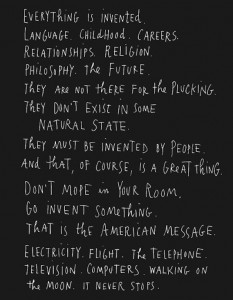 EVERYTHING IS INVENTED.
LANGUAGE. CHILDHOOD. CAREERS.
RELATIONSHIPS. RELIGION.
PHILOSOPHY. THE FUTURE.
THEY ARE NOT THERE FOR THE PLUCKING.
THEY DON'T EXIST IN SOME
NATURAL STATE.
THEY MUST BE INVENTED BY PEOPLE.
AND THAT, OF COURSE, IS A GREAT THING.
DON'T MOPE IN YOUR ROOM.
GO INVENT SOMETHING.
THAT IS THE AMERICAN MESSAGE.
ELECTRICITY. FLIGHT. THE TELEPHONE.
TELEVISION. COMPUTERS. WALKING ON
THE MOON. IT NEVER STOPS.